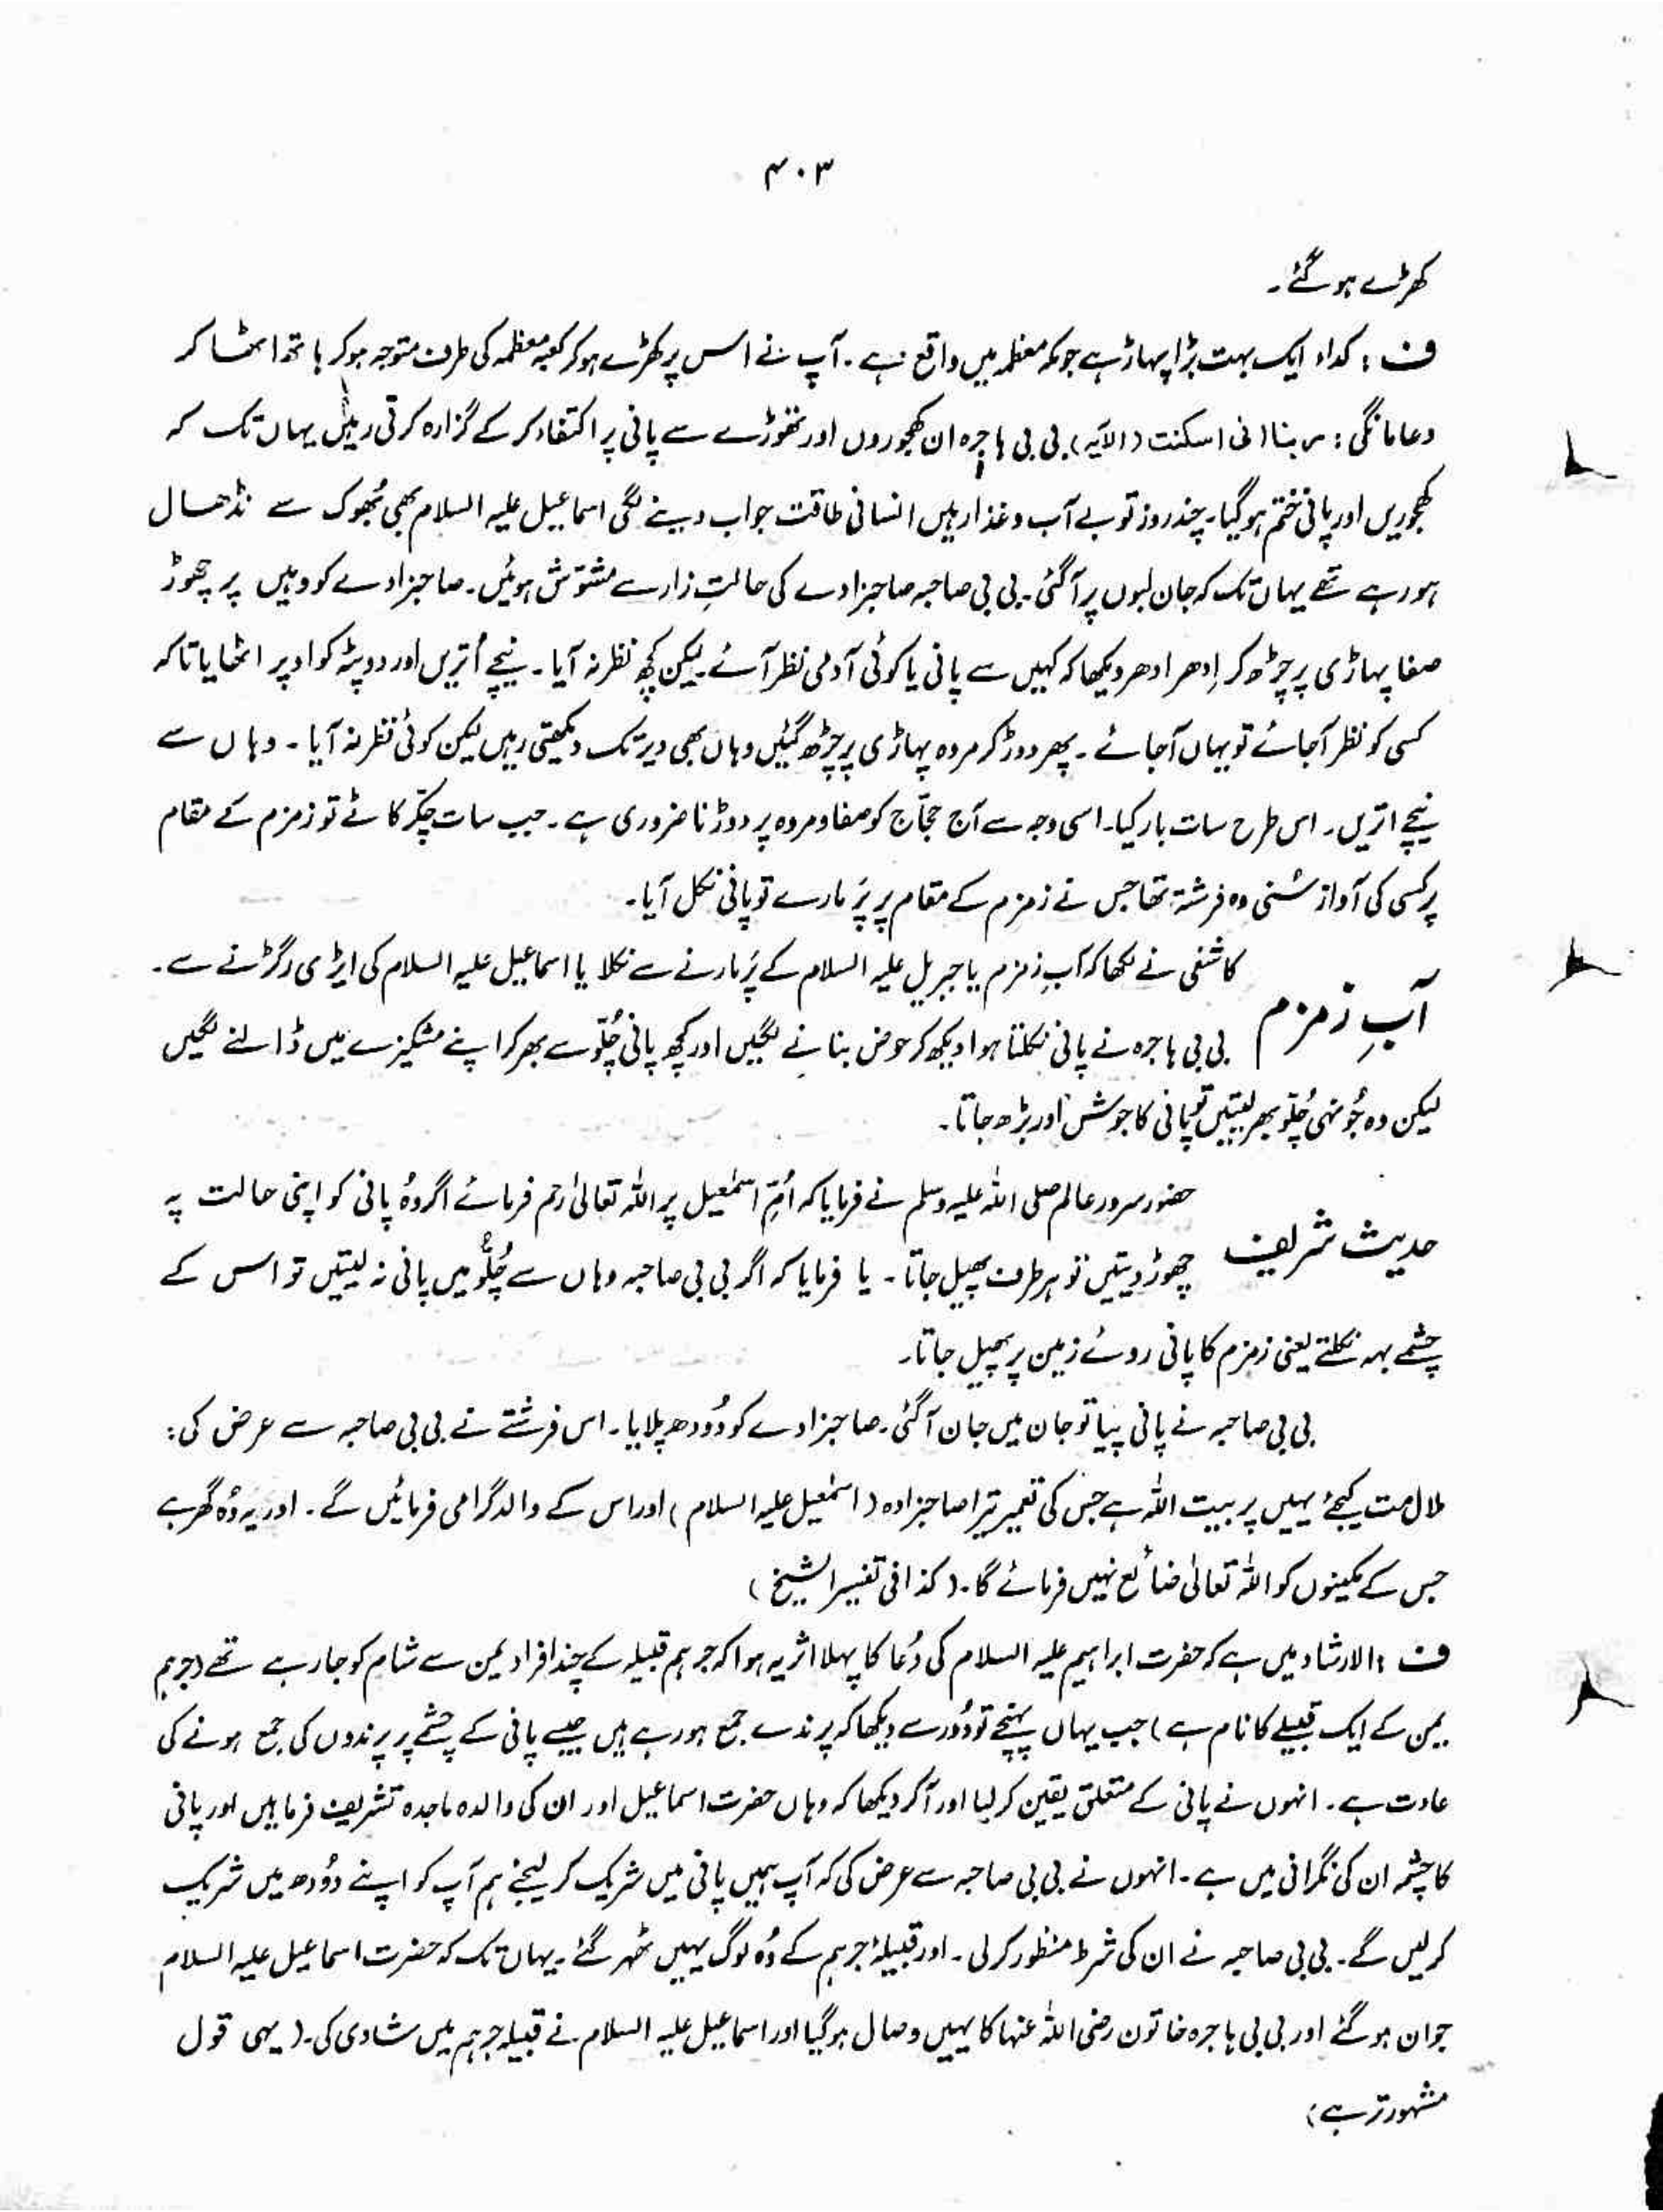 ۴۰۳
کھڑے ہو گئے۔
ف : کداء ایک بہت بڑا پہاڑ ہے جو مکہ معظمہ میں واقع ہے۔ آپ نے اس پر کھڑے ہو کر کعبہ معظمہ کی طرف متوجہ ہو کر ہاتھ اٹھا کر
دعا مانگی : ربنا انی اسکنت (الآیہ) بی بی ہاجرہ ان کھجوروں اور تھوڑے سے پانی پر اکتفاء کر کے گزارہ کرتی رہیں یہاں تک کہ
کھجوریں اور پانی ختم ہو گیا۔ چند روز تو بے آب و غذا رہیں انسانی طاقت جواب دینے لگی اسماعیل علیہ السلام بھی بھُوک سے نڈھال
ہو رہے تھے یہاں تک کہ جان لبوں پر آگئی۔ بی بی صاحبہ صاحبزادے کی حالتِ زار سے مشوّش ہوئیں۔ صاحبزادے کو وہیں پر چھوڑ
صفا پہاڑی پر چڑھ کر اِدھر ادھر دیکھا کہ کہیں سے پانی یا کوئی آدمی نظر آئے لیکن کچھ نظر نہ آیا۔ نیچے اُتریں اور دوپٹہ کو اوپر اٹھایا تاکہ
کسی کو نظر آجائے تو یہاں آجائے۔ پھر دوڑ کر مروہ پہاڑی پر چڑھ گئیں وہاں بھی دیر تک دیکھتی رہیں لیکن کوئی نظر نہ آیا۔ وہاں سے
نیچے اتریں۔ اس طرح سات بار کیا۔ اسی وجہ سے آج حجّاج کو صفا و مروہ پر دوڑنا ضروری ہے۔ جب سات چکّر کاٹے تو زمزم کے مقام
پر کسی کی آواز سُنی وہ فرشتہ تھا جس نے زمزم کے مقام پر پَر مارے تو پانی نکل آیا۔
آبِ زمزم
کاشفی نے لکھا کہ آبِ زمزم یا جبریل علیہ السلام کے پَر مارنے سے نکلا یا اسماعیل علیہ السلام کی ایڑی رگڑنے سے۔
بی بی ہاجرہ نے پانی نکلتا ہوا دیکھ کر حوض بنانے لگیں اور کچھ پانی چُلّو سے بھر کر اپنے مشکیزے میں ڈالنے لگیں
لیکن وہ جُونہی چُلّو بھر لیتیں تو پانی کا جوش اور بڑھ جاتا۔
حدیث شریف
حضور سرور عالم صلی اللہ علیہ وسلم نے فرمایا کہ اُمِّ اسمٰعیل پر اللہ تعالیٰ رحم فرمائے اگر وُہ پانی کو اپنی حالت پہ
چھوڑ دیتیں تو ہر طرف پھیل جاتا۔ یا فرمایا کہ اگر بی بی صاحبہ وہاں سے چُلُّو میں پانی نہ لیتیں تو اس کے
چشمے بہہ نکلتے یعنی زمزم کا پانی روئے زمین پر پھیل جاتا۔
بی بی صاحبہ نے پانی پیا تو جان میں جان آگئی۔ صاحبزادے کو دُودھ پلایا۔ اس فرشتے نے بی بی صاحبہ سے عرض کی :
ملال مت کیجئے یہیں پر بیت اللہ ہے جس کی تعمیر تیرا صاحبزادہ (اسمٰعیل علیہ السلام) اور اس کے والد گرامی فرمائیں گے۔ اور یہ وُہ گھر ہے
جس کے مکینوں کو اللہ تعالیٰ ضائع نہیں فرمائے گا۔ (کذا فی تفسیر الشیخ)
ف : الارشاد میں ہے کہ حضرت ابراہیم علیہ السلام کی دُعا کا پہلا اثر یہ ہوا کہ جرہم قبیلہ کے چند افراد یمن سے شام کو جا رہے تھے (جرہم
یمن کے ایک قبیلے کا نام ہے) جب یہاں پہنچے تو دُور سے دیکھا کہ پرندے جمع ہو رہے ہیں جیسے پانی کے چشمے پر پرندوں کی جمع ہونے کی
عادت ہے۔ انہوں نے پانی کے متعلق یقین کر لیا اور آ کر دیکھا کہ وہاں حضرت اسماعیل اور ان کی والدہ ماجدہ تشریف فرما ہیں اور پانی
کا چشمہ ان کی نگرانی میں ہے۔ انہوں نے بی بی صاحبہ سے عرض کی کہ آپ ہمیں پانی میں شریک کر لیجئے ہم آپ کو اپنے دُودھ میں شریک
کر لیں گے۔ بی بی صاحبہ نے ان کی شرط منظور کر لی۔ اور قبیلۂ جرہم کے وُہ لوگ یہیں ٹھہر گئے۔ یہاں تک کہ حضرت اسماعیل علیہ السلام
جوان ہو گئے اور بی بی ہاجرہ خاتون رضی اللہ عنہا کا یہیں وصال ہو گیا اور اسماعیل علیہ السلام نے قبیلہ جرہم میں شادی کی۔ (یہی قول
مشہور تر ہے)